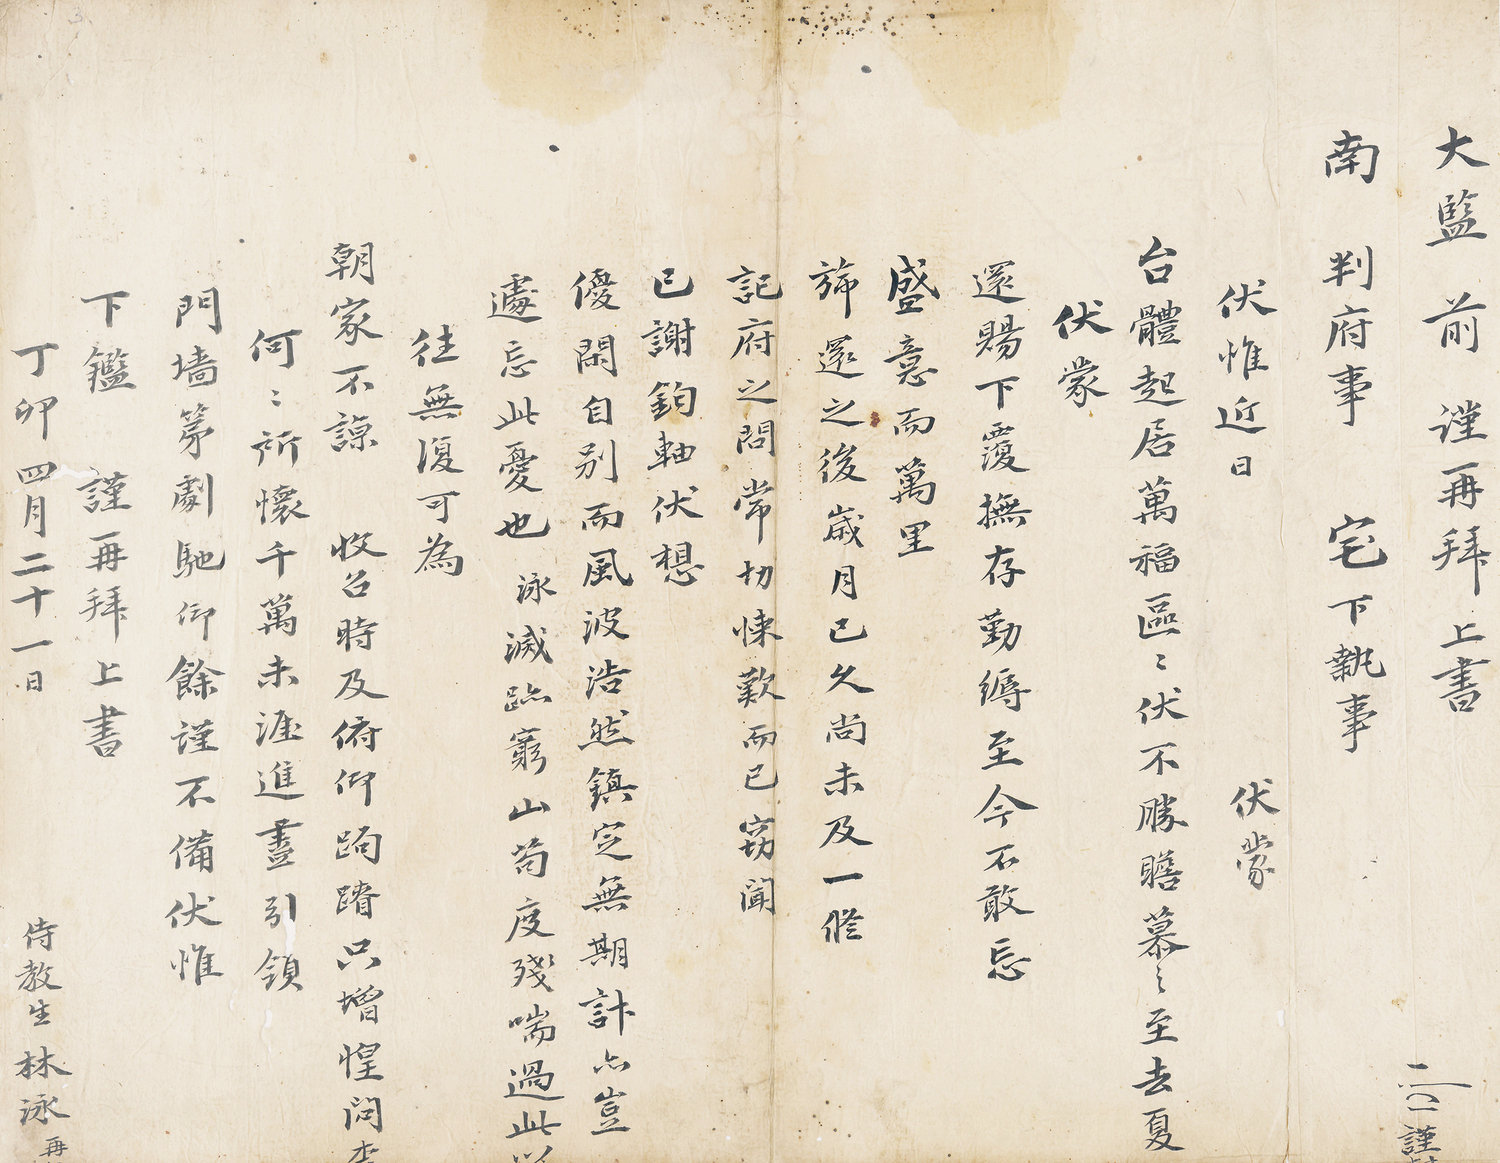 大監 前 謹再拜 上書
南 判府事 宅 下執事
伏惟近日
伏蒙
台體起居萬福區〻伏不勝瞻慕〻至去夏
伏蒙
還賜下覆撫存勤縟至今不敢忘
盛意而萬里
旆還之後歲月已久尚未及一修
記府之問常切悚歎而已竊聞
已謝鈞軸伏想
優閑自別而風波浩然鎮定無期計亦豈
遽忘此憂也 泳滅跡窮山苟度殘喘過此以
往無復可為
朝家不諒 收召時及俯仰跼蹐只增惶悶李
何〻所懷千萬未涯進盡引領
門墻第劇馳仰餘謹不備伏惟
下鑑 謹再拜上書
丁卯四月二十一日
侍教生 林泳 再
謹